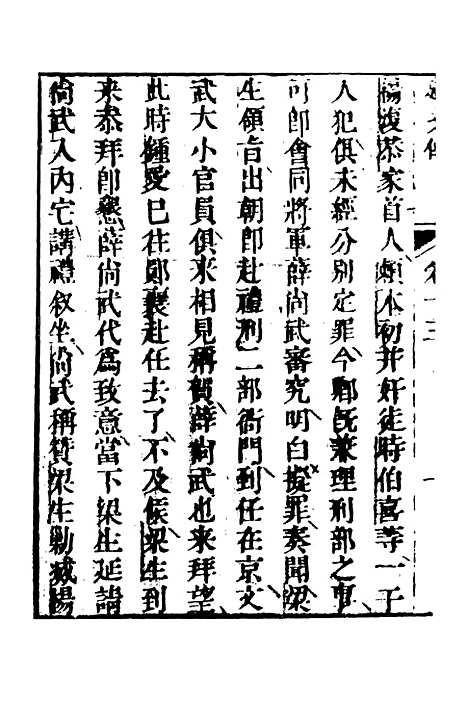 卷十三
楊復恭家首人賴本初并奸徒時伯喜等一干
人犯俱未經分別定罪今卿既兼理刑部之事
可即會同將軍薛尚武審究明白擬罪奏聞梁
生領旨出朝即赴禮刑二部衙門到任在京文
武大小官員俱來相見稱賀薛尚武也來拜望
此時鍾愛已往鄖襄赴任去了不及候梁生到
來叅拜即懇薛尚武代為致意當下梁生延請
尚武入內它講禮叙坐尚武稱贊梁生勦滅楊